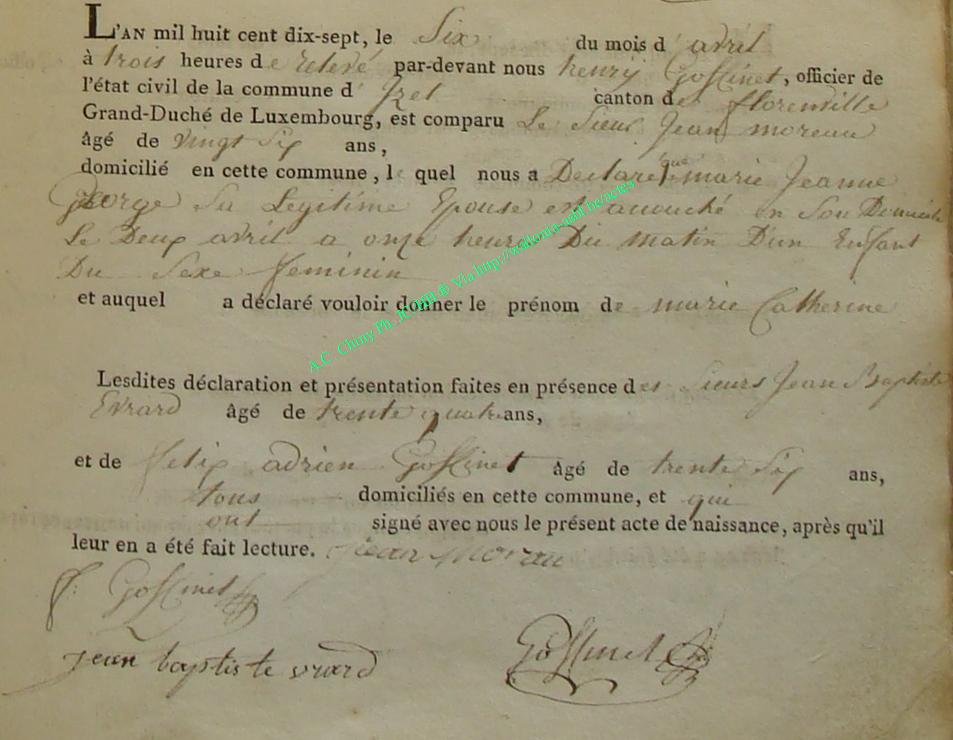 L'AN mil huit cent dix-sept, le Six du mois d' avril
à trois heures de relevé par-devant nous henry Gossinet, officier de
l'état civil de la commune d' Izel canton de florenville
Grand-Duché de Luxembourg, est comparu Le Sieur Jean moreau
âgé de vingt Six ans,
domicilié en cette commune, le quel nous a Declaré que marie Jeanne
George Sa Legitime Epouse est acouché en Son Domicile
Le Deux avril a onze heure Du matin D'un Enfant
Du Sexe feminin
et auquel a déclaré vouloir donner le prénom de marie Catherine
Lesdites déclaration et présentation faites en présence des Sieurs Jean Baptiste
Evrard âgé de trente quatre ans,
et de felix adrien Gossinet âgé de trente Six ans,
tous domiciliés en cette commune, et qui
ont signé avec nous le présent acte de naissance, après qu'il
leur en a été fait lecture. Jean Morau
f: Gossinet
jean baptiste evrard Gossinet
A.C. Chiny Ph. JC ® Via http://wallonia-asbl.be/actes